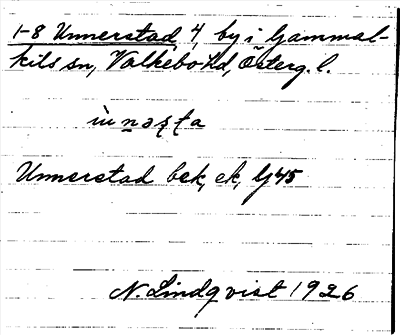 1-8 Unnerstad, 4, by i Gammal-
kils sn, Valkebo hd, Österg. l.
ùnəsta
Unnerstad bek, ek, Gj45
N. Lindqvist 1926